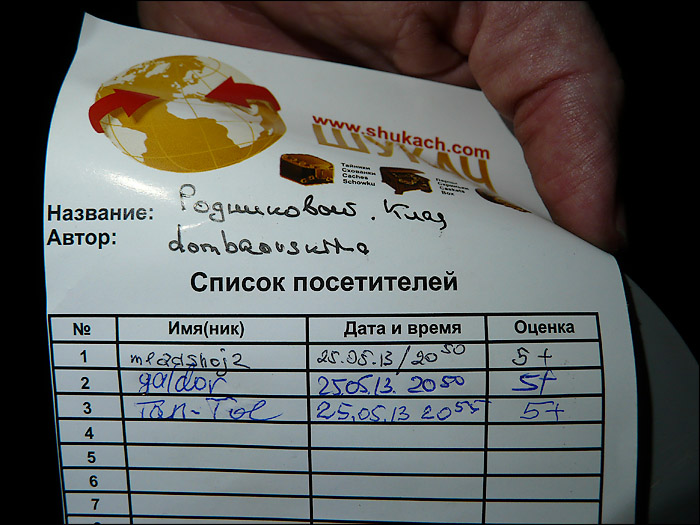 www.shukach.com
ШУКАЧ
Тайники
Схованки
Caches
Schowku
Box
Название: Родниковый. Клад
Автор:
Список посетителей
№ Имя(ник) Дата и время Оценка
1 mladshoj2 25.05.13/20 50 5+
2 galdor 25.05.13. 20 50 5+
3 Tan-Tol 25.05.13 20 55 5+
4
5
6
7